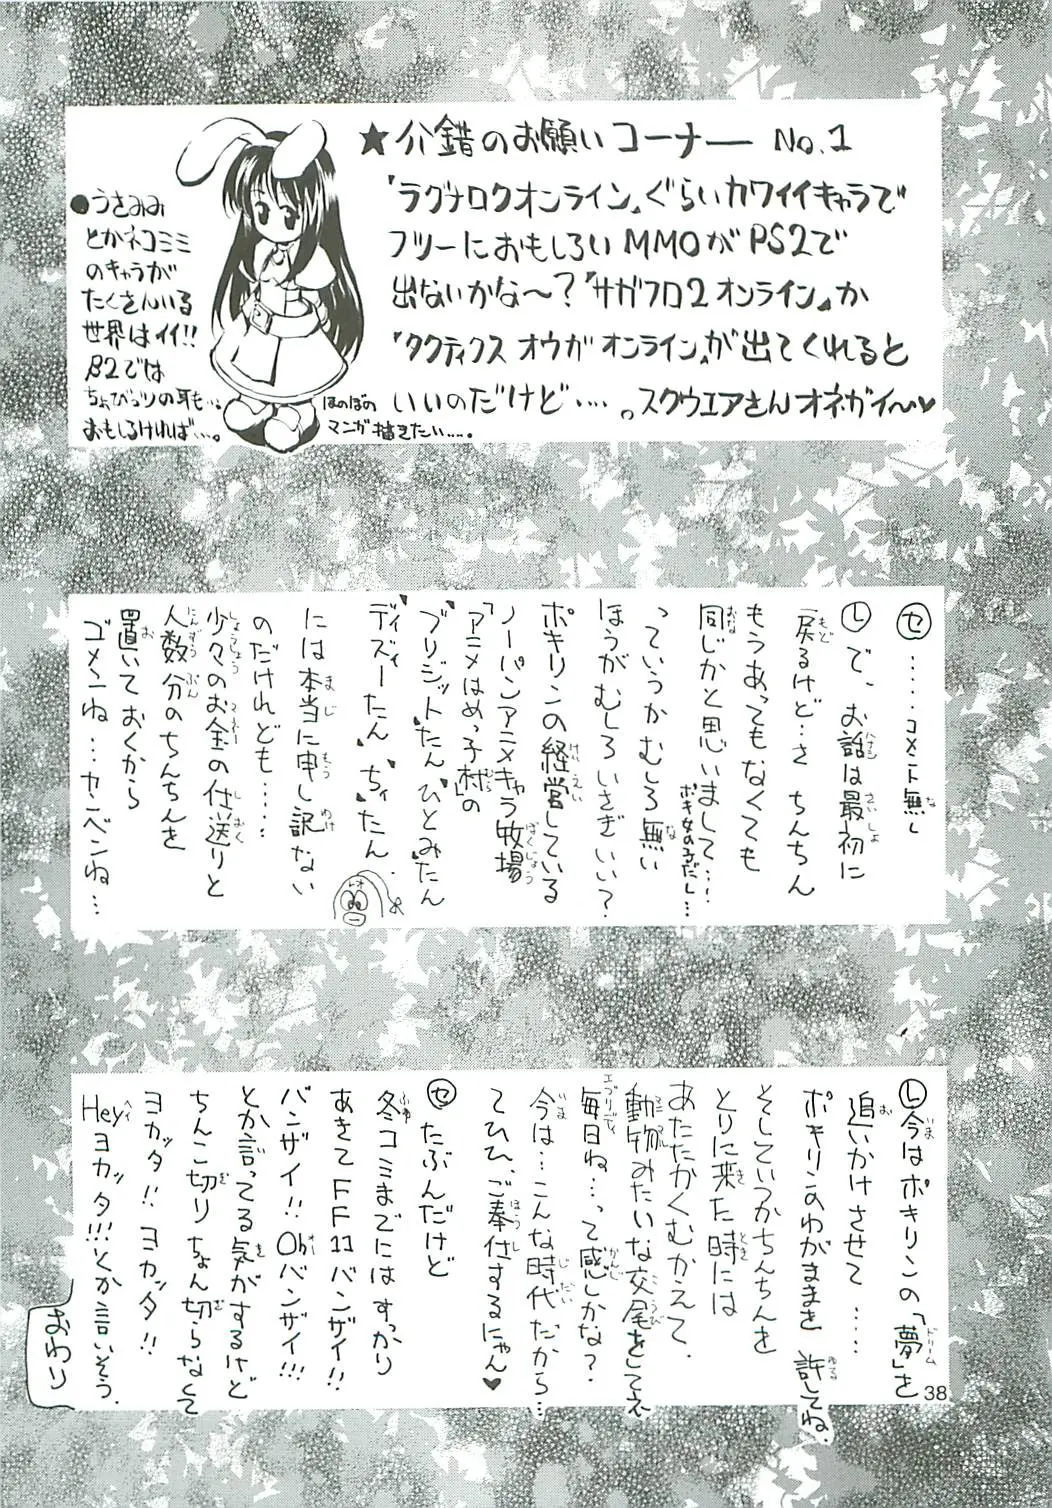 ★介錯のお願いコーナー No.1
『ラグナロクオンライン』ぐらいカワイイキャラで
フツーにおもしろいMMOがPS2で
出ないかな〜?『サガフロ2オンライン』か
『タクティクスオウガオンライン』が出てくれると
いいのだけど….。スクウエアさんオネガイ〜♥
●うさみみ
とかネコミミ
のキャラが
たくさんいる
世界はイイ!!
β2では
ちょびっツの耳も…。
おもしろければ…。
ほのぼの
マンガ描きたい….。
㋝……コメント無し
㋹で、お話は最初に
戻るけど…さ ちんちん
もうあってもなくても
同じかと思いまして…
ポキ女の子だし…
っていうかむしろ無い
ほうがむしろいさぎいい?
ポキリンの経営している
ノーパンアニメキャラ牧場
「アニメはめっ子村」の
“ブリジット”たん“ひとみ”たん
“ディズィー”たん“ちぃ”たん
には本当に申し訳ない
のだけれども……
少々のお金の仕送りと
人数分のちんちんを
置いておくから
ゴメ〜ンね…カンベンね…
レオ
㋹今はポキリンの「夢」を
追いかけさせて……
ポキリンのわがままを許してね.
そしていつかちんちんを
とりに来た時には
あたたかくむかえて、
動物みたいな交尾をしてえ
毎日ね…って感じかな?
今は…こんな時代だから…
てひひ、ご奉仕するにゃん♥
㋝たぶんだけど
冬コミまでにはすっかり
あきてFF11バンザイ!!
バンザイ!!Ohバンザイ!!!
とか言ってる気がするけど
ちんこ切りちょん切らなくて
ヨカッタ!!ヨカッタ!!
Heyヨカッタ!!!とか言いそう.
おわり
38